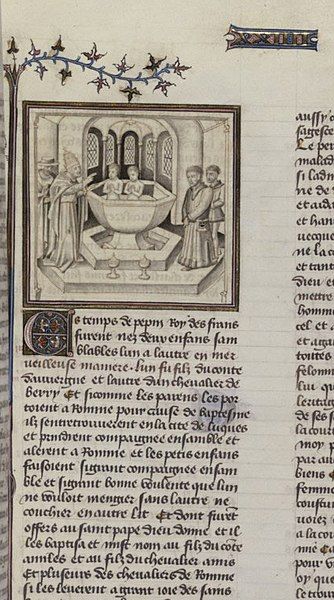 XXIII
Es temps de pepin Roy des frans
furent nez deux enfans sam
blables lun a lautre en mer
veilleuse maniere. Lun fu filz du conte
dauvergne et lautre dun chevalier de
berry Et sicomme les parens les por
toient a Romme pour cause de baptesme
ilz sentretrouverent en la cite de luques
et prindrent compaignee ensamble et
alerent a Romme et les petis enfans
faisoient si grant compaignee ensam
ble et si grant bonne voulente que lun
ne vouloit mengier sans lautre ne
couchier en autre lit Et dont furent
offers au saint pape dieu donne et il
les baptisa et mist nom au filz du conte
amiles et au filz du chevalier amis
Et pluseurs des chevaliers de Romme
si les leverent a grant ioie des sains
aussy
sagesce
Le per
malad
si ladm
ne de
et aida
et har
vecque
ne la
et tant
dieu et
mettre
homme
cel et
et agra
toutes
felonn
lui qu
leritag
de ses
la cour
moy p
par au
biens
femme
coustu
voiez
a la co
me
pour v
oy que
le trou